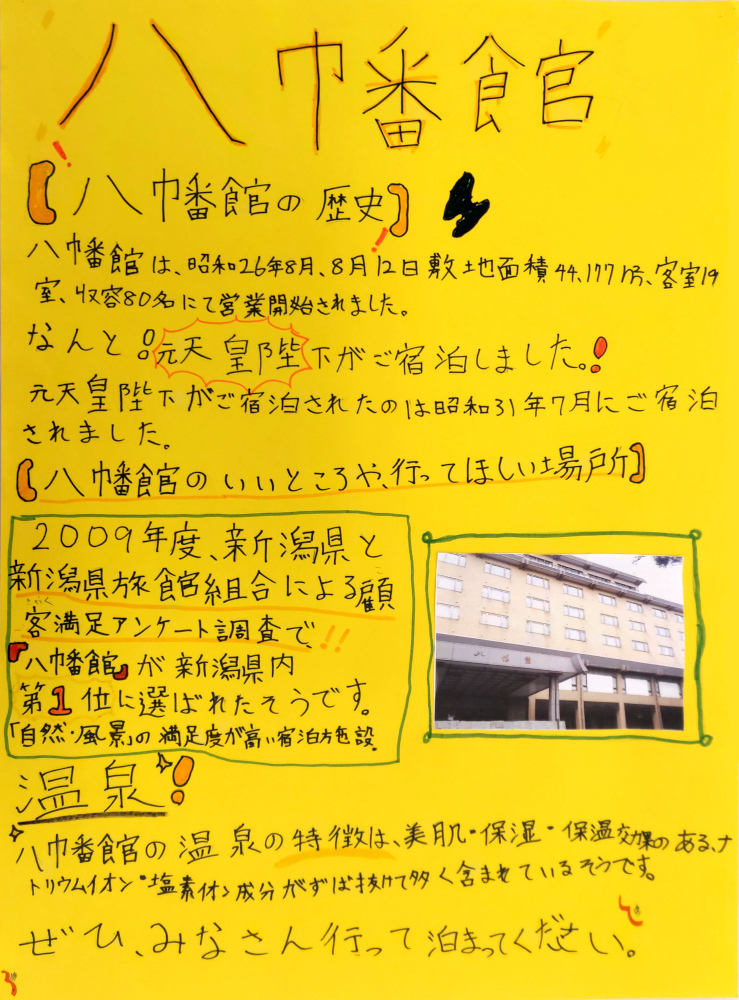 八幡館
【八幡館の歴史】
八幡館は、昭和26年8月、8月12日敷地面積44,177㎡、客室19
室、収容80名にて営業開始されました。
なんと!元天皇陛下がご宿泊しました。!
元天皇陛下がご宿泊されたのは昭和31年7月にご宿泊
されました。
【八幡館のいいところや、行ってほしい場所】
2009年度、新潟県と
新潟県旅館組合による顧
客満足アンケート調査で!!
『八幡館』が新潟県内
第1位に選ばれたそうです。
「自然・風景」の満足度が高い宿泊施設
八幡館
温泉!
八幡館の温泉の特徴は、美肌・保湿・保温効果のある、ナ
トリウムイオン・塩素イオン成分がずば抜けて多く含まれているそうです。
ぜひ、みなさん行って泊まってください。